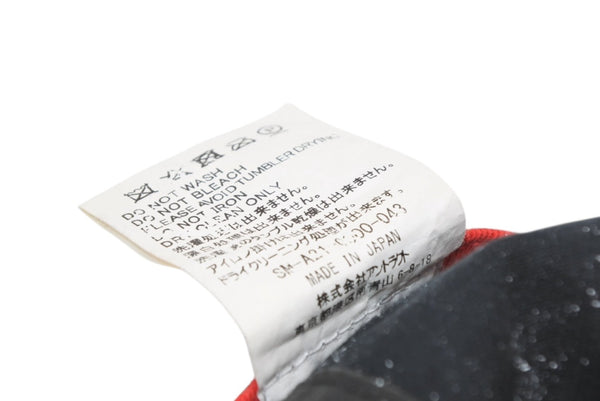 DO NOT WASH
DO NOT BLEACH
PLEASE AVOID TUMBLER DRYING
DO NOT IRON
DRY CLEAN ONLY
出来ません。
出来ません。
タンブル乾燥は出来ません。
アイロン掛けは出来ません。
ドライクリーニング処理が出来ます。
SM-A21 00-043
MADE IN JAPAN
株式会社アントラト
東京都港区南青山 6-8-18